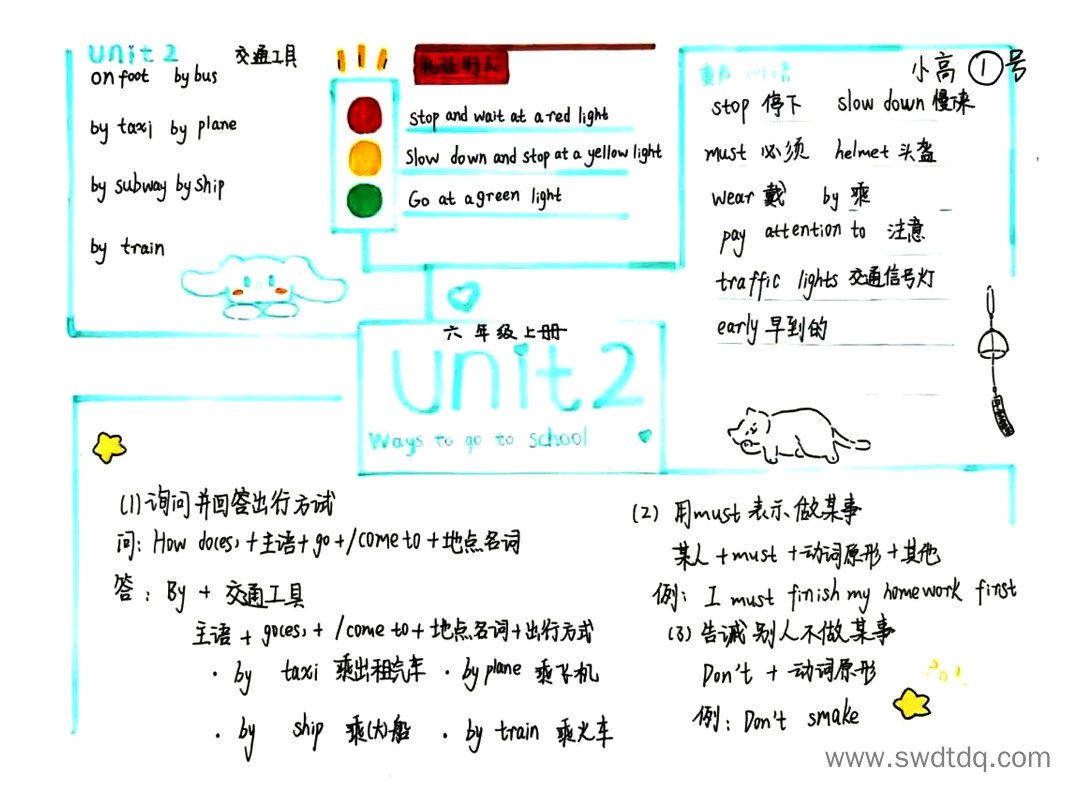 unit 2 交通工具
on foot by bus
by taxi by plane
by subway by ship
by train
礼让行人
stop and wait at a red light
Slow down and stop at a yellow light
Go at a green light
小高①号
stop 停下 slow down 慢下来
must 必须 helmet 头盔
wear 戴 by 乘
pay attention to 注意
traffic lights 交通信号灯
early 早到的
六年级上册
unit 2
Ways to go to school
(1) 询问并回答出行方试
问: How do(es) + 主语 + go + /come to + 地点名词
答: By + 交通工具
主语 + go(es) + /come to + 地点名词 + 出行方式
· by taxi 乘出租汽车 · by plane 乘飞机
· by ship 乘(大)船 · by train 乘火车
(2) 用must 表示做某事
某人 + must + 动词原形 + 其他
例: I must finish my homework first
(3) 告诫别人不做某事
Don't + 动词原形
例: Don't smake
www.swdtdq.com